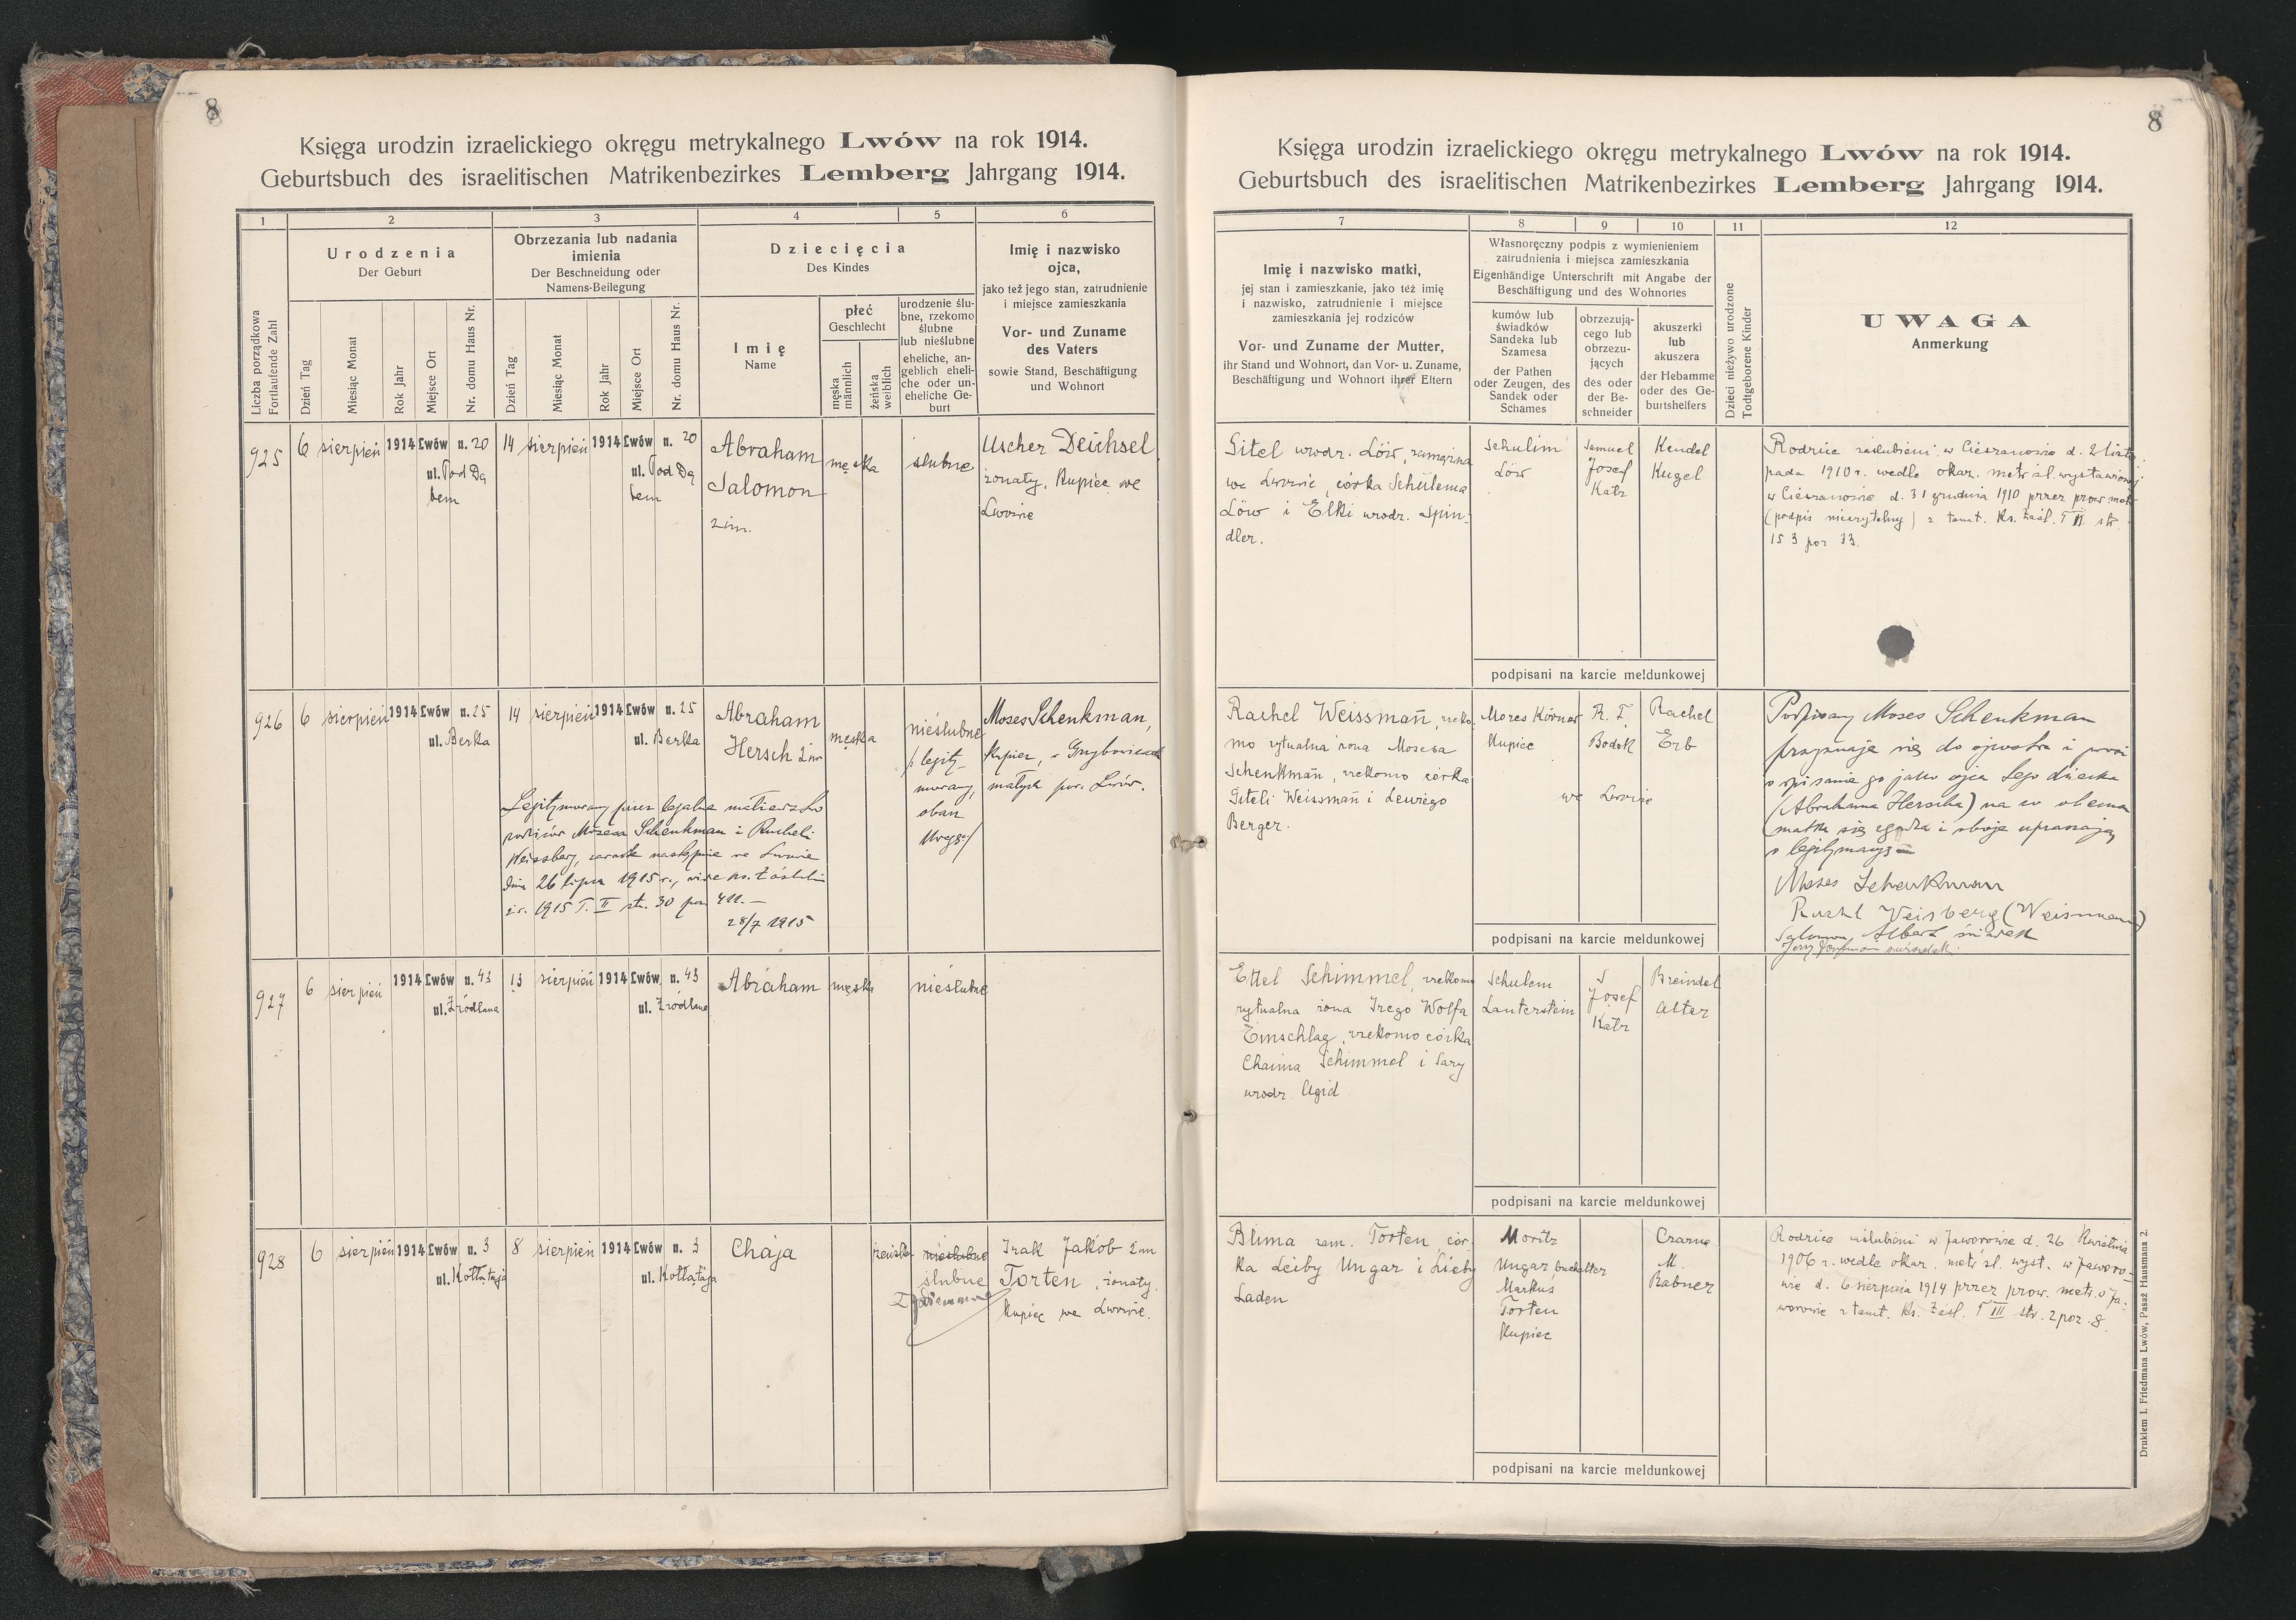 8
Księga urodzin izraelickiego okręgu metrykalnego Lwów na rok 1914.
Geburtsbuch des israelitischen Matrikenbezirkes Lemberg Jahrgang 1914.
1
2
3
4
5
6
Liczba porządkowa
Fortlaufende Zahl
Urodzenia
Der Geburt
Dzień Tag
Miesiąc Monat
Rok Jahr
Miejsce Ort
Nr. domu Haus Nr.
Obrzezania lub nadania
imienia
Der Beschneidung oder
Namens-Beilegung
Dzień Tag
Miesiąc Monat
Rok Jahr
Miejsce Ort
Nr. domu Haus Nr.
Dziecięcia
Des Kindes
Imię
Name
płeć
Geschlecht
męska
männlich
żeńska
weiblich
urodzenie ślu-
bne, rzekomo
ślubne
lub nieślubne
eheliche, an-
geblich eheli-
che oder un-
eheliche Ge-
burt
Imię i nazwisko
ojca,
jako też jego stan, zatrudnienie
i miejsce zamieszkania
Vor- und Zuname
des Vaters
sowie Stand, Beschäftigung
und Wohnort
925
6 sierpień 1914 Lwów n. 20
ul. Pod Dę
bem
14 sierpień 1914 Lwów n. 20
ul. Pod Dę
bem
Abraham
Salomon
2 im.
męska
ślubne
Uscher Deichsel
żonaty, Kupiec we
Lwowie
926
6 sierpień 1914 Lwów n. 25
ul. Berka
14 sierpień 1914 Lwów n. 25
ul. Berka
Abraham
Hersch 2 im
męska
nieślubne
/: legity-
mowany,
obacz
Uwagę:/
Moses Schenkman,
kupiec, w Grzybowicach
małych pow. Lwów.
Legitymowany przez legalne małżeństwo
rodziców Mosesa Schenkman i Racheli
Weissberg, zawarte następnie we Lwowie
dnia 26 lipca 1915 r., vide ks. zaślubin
z r. 1915 T. II str. 30 poz. 411. —
28/7 1915
927
6 sierpień 1914 Lwów n. 43
ul. Źródlana
13 sierpień 1914 Lwów n. 43
ul. Źródlana
Abraham
męska
nieślubne
928
6 sierpień 1914 Lwów n. 3
ul. Kołłątaja
8 sierpień 1914 Lwów n. 3
ul. Kołłątaja
Chaja
żeńska
nieślubne
ślubne
Izak Jakób 2 im
Torten, żonaty,
kupiec we Lwowie.
8
Księga urodzin izraelickiego okręgu metrykalnego Lwów na rok 1914.
Geburtsbuch des israelitischen Matrikenbezirkes Lemberg Jahrgang 1914.
7
8
9
10
11
12
Imię i nazwisko matki,
jej stan i zamieszkanie, jako też imię
i nazwisko, zatrudnienie i miejsce
zamieszkania jej rodziców
Vor- und Zuname der Mutter,
ihr Stand und Wohnort, dan Vor- u. Zuname,
Beschäftigung und Wohnort ihrer Eltern
Własnoręczny podpis z wymienieniem
zatrudnienia i miejsca zamieszkania
Eigenhändige Unterschrift mit Angabe der
Beschäftigung und des Wohnortes
kumów lub
świadków
Sandeka lub
Szamesa
der Pathen
oder Zeugen, des
Sandek oder
Schames
obrzezują-
cego lub
obrzezu-
jących
des oder
der Be-
schneider
akuszerki
lub
akuszera
der Hebamme
oder des Ge-
burtshelfers
Dzieci nieżywo urodzone
Todtgeborene Kinder
UWAGA
Anmerkung
Gitel urodz. Löw, zamężna
we Lwowie, córka Schulema
Löw i Elki urodz. Spin-
dler.
Schulim
Löw
Samuel
Josef
Katz
Hendel
Kugel
Rodzice zaślubieni w Cieszanowie d. 2 listo-
pada 1910 r. wedle okaz. metr. śl. wystawionej
w Cieszanowie d. 31 grudnia 1910 przez prow. metr.
(podpis nieczytelny) z tamt. Ks. Zaśl. T II str.
153 poz 33.
podpisani na karcie meldunkowej
Rachel Weissman, rzeko-
mo rytualna żona Mosesa
Schenkman, rzekomo córka
Giteli Weissman i Lewiego
Berger.
Mozes Körner
Kupiec
R. I.
Bodek
Rachel
Erb
we Lwowie
Podpisany Moses Schenkman
przyznaje się do ojcostwa i prosi
o wpisanie go jako ojca tego dziecka
(Abrahama Herscha) na co obecna
matka się zgadza i oboje upraszają
o legitymację —
Moses Schenkman
Ruchl Weisberg (Weismann)
Salomon Albert świadek
podpisani na karcie meldunkowej
Ettel Schimmel, rzekomo
rytualna żona Izego Wolfa
Einschlag, rzekomo córka
Chaima Schimmel i Sary
urodz. Agid
Schulem
Lauterstein
S
Josef
Katz
Breindel
Alter
podpisani na karcie meldunkowej
Blima zam. Torten cór-
ka Leiby Ungar i Lieby
Laden
Moritz
Ungar buchalter
Markus
Torten
Kupiec
Czarne
M.
Rabner
Rodzice zaślubieni w Jaworowie d. 26 Kwietnia
1906 r. wedle okaz. metr. śl. wyst. w Jaworo-
wie d. 6 sierpnia 1914 przez prow. metr. w Ja-
worowie z tamt. Ks. Zaśl. T III str. 2 poz. 8.
podpisani na karcie meldunkowej
Drukiem I. Friedmana Lwów, Pasaż Hausmana 2.